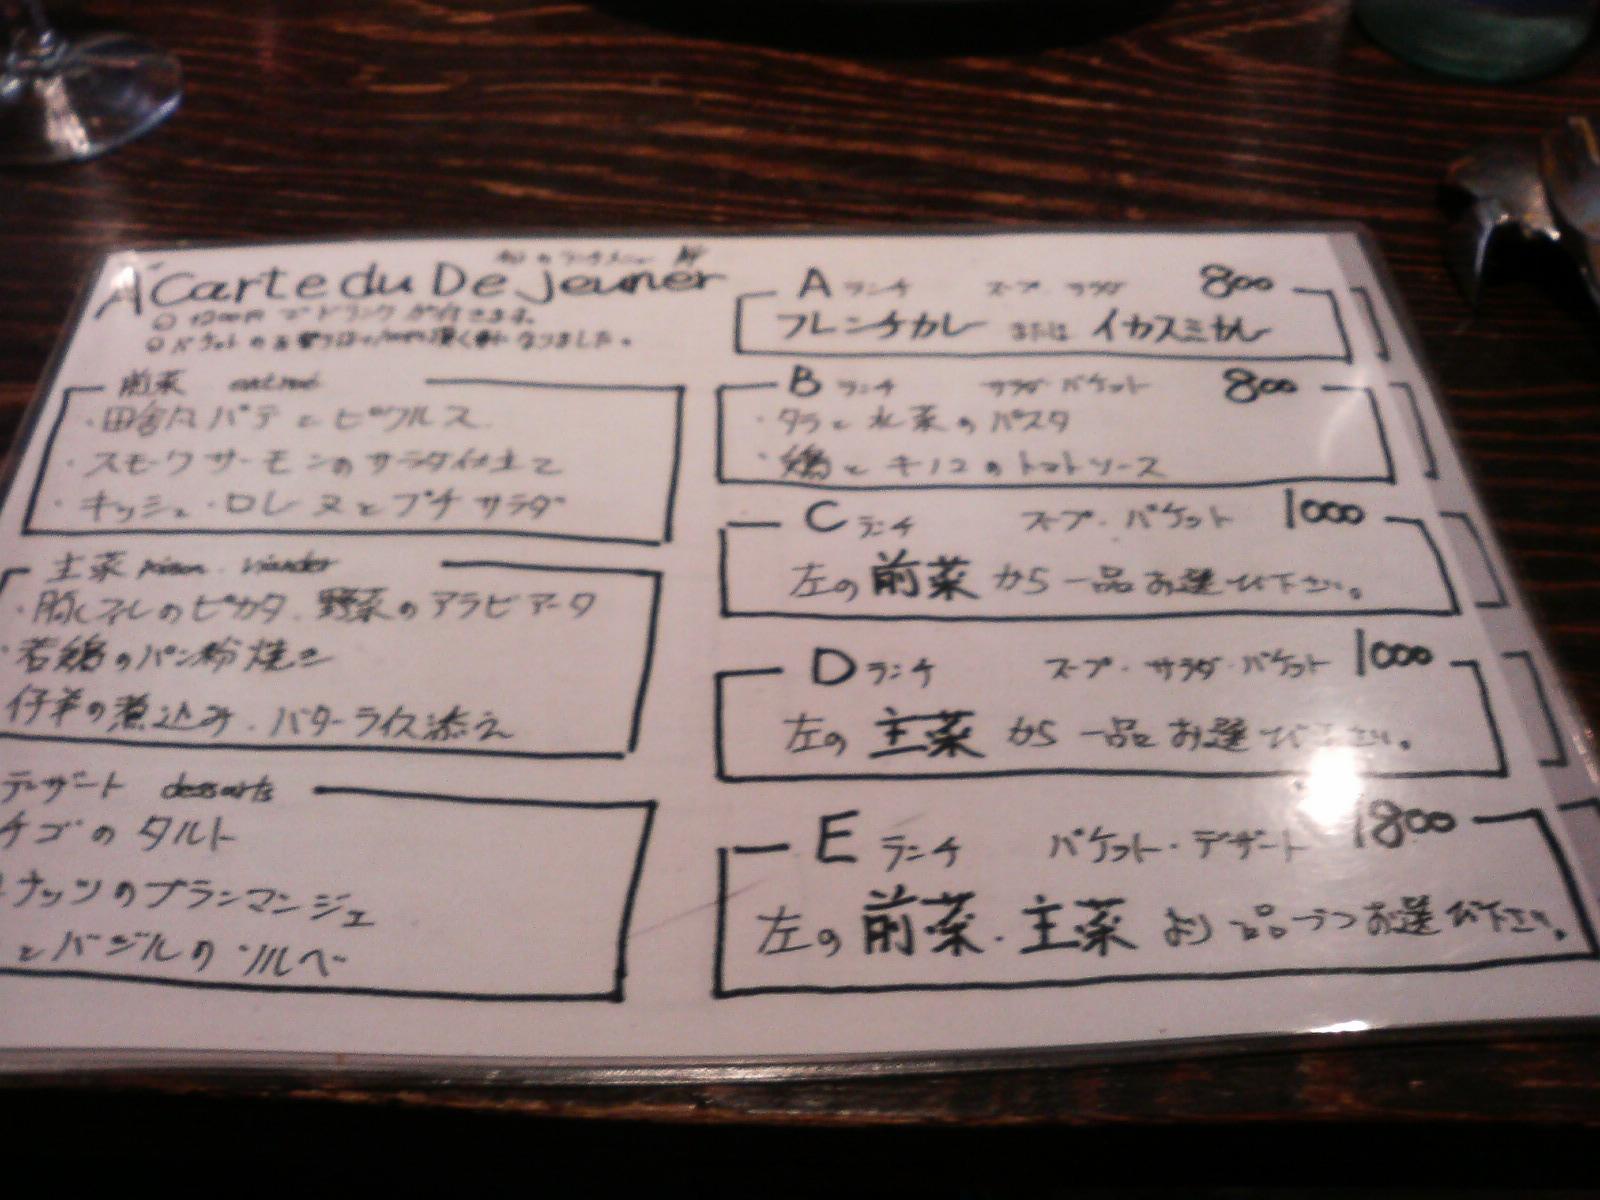 Carte du De jeuner
前菜
・田舎風パテとピクルス
・スモークサーモンのサラダ仕立て
・キッシュ・ロレーヌとプチサラダ
主菜
・豚ヒレのピカタ、野菜のアラビアータ
・若鶏のパン粉焼き
仔羊の煮込み、バターライス添え
デザート desserts
チゴのタルト
ナッツのブランマンジェ
とバジルのソルベ
Aランチ スープ・サラダ 800
フレンチカレー または イカスミカレー
Bランチ サラダ・バケット 800
・タラと水菜のパスタ
・鶏とキノコのトマトソース
Cランチ スープ・バケット 1000
左の前菜から一品お選び下さい。
Dランチ スープ・サラダ・バケット 1000
左の主菜から一品お選び下さい。
Eランチ バケット・デザート 1800
左の前菜・主菜より一品づつお選び下さい。